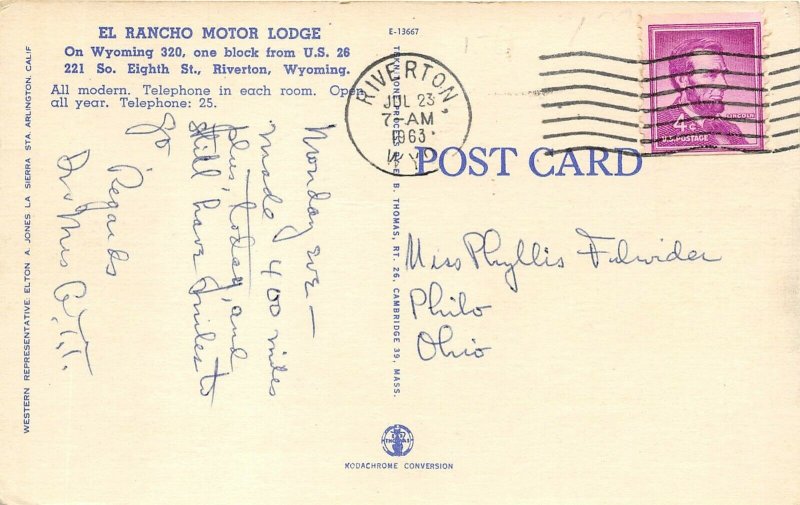 EL RANCHO MOTOR LODGE
On Wyoming 320, one block from U.S. 26
221 So. Eighth St., Riverton, Wyoming.
All modern. Telephone in each room. Open
all year. Telephone: 25.
E-13667
RIVERTON,
JUL 23
7-AM
1963
WYO
4¢
LINCOLN
U.S. POSTAGE
POST CARD
Monday eve—
Made 400 miles
plus, today, and
still have miles to
go
Regards
Dr & Mrs
Miss Phyllis Fulwider
Philo
Ohio
WESTERN REPRESENTATIVE ELTON A. JONES LA SIERRA STA. ARLINGTON, CALIF
E B. THOMAS, RT. 26, CAMBRIDGE 39, MASS.
THOMAS
KODACHROME CONVERSION